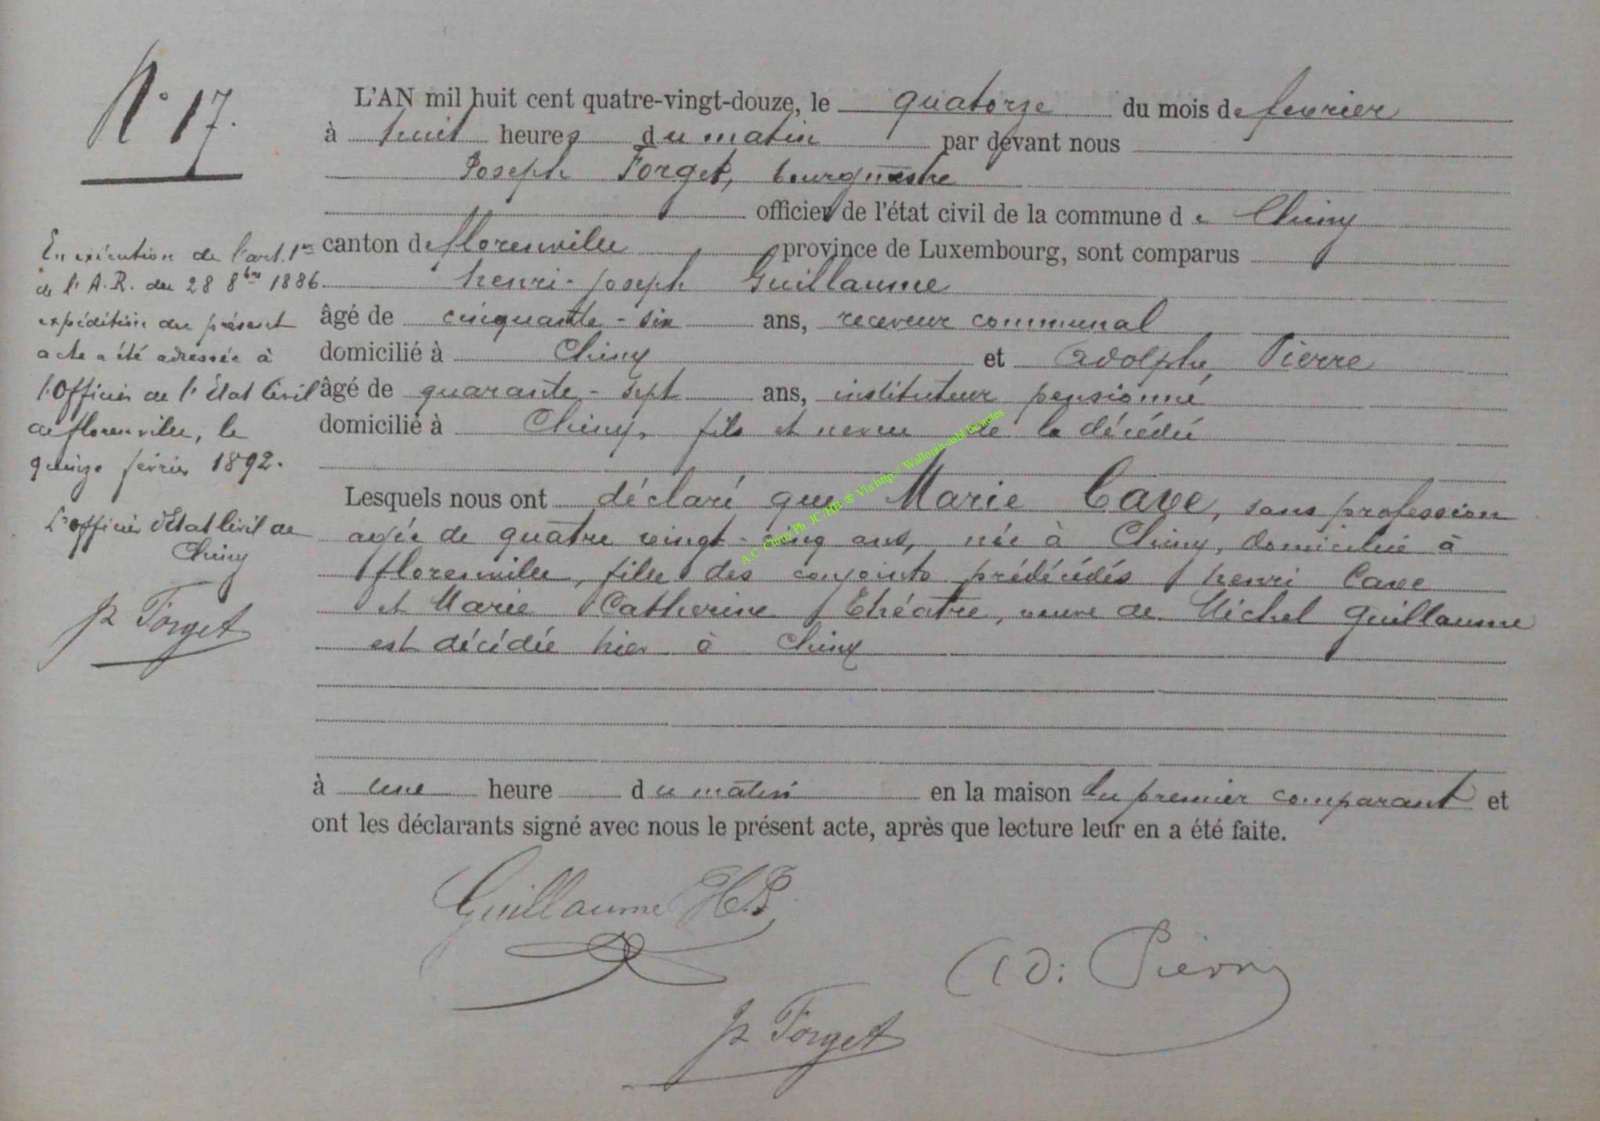 N° 17.
L'AN mil huit cent quatre-vingt-douze, le quatorze du mois de fevrier
à huit heures du matin par devant nous
Joseph Forget, bourgmestre
officier de l'état civil de la commune de Chiny
canton de florenville province de Luxembourg, sont comparus
henri-joseph Guillaume
âgé de cinquante-six ans, receveur communal
domicilié à Chiny et Adolphe Pierre
âgé de quarante-sept ans, instituteur pensionné
domicilié à Chiny, fils et neveu de la décédée
Lesquels nous ont déclaré que Marie Cave, sans profession
agée de quatre vingt-cinq ans, née à Chiny, domiciliée à
florenville, fille des conjoints prédécédés henri Cave
et Marie Catherine Théâtre, veuve de Michel Guillaume
est décédée hier à Chiny
à une heure du matin en la maison du premier comparant et
ont les déclarants signé avec nous le présent acte, après que lecture leur en a été faite.
En exécution de l'art. 1er
de l'A.R. du 28 8bre 1886
expédition du présent
acte a été adressée à
l'Officier de l'État Civil
de florenville, le
quinze février 1892.
L'officier d'Etat Civil de
Chiny
Js Forget
Guillaume HJ
Ad: Pierre
Js Forget